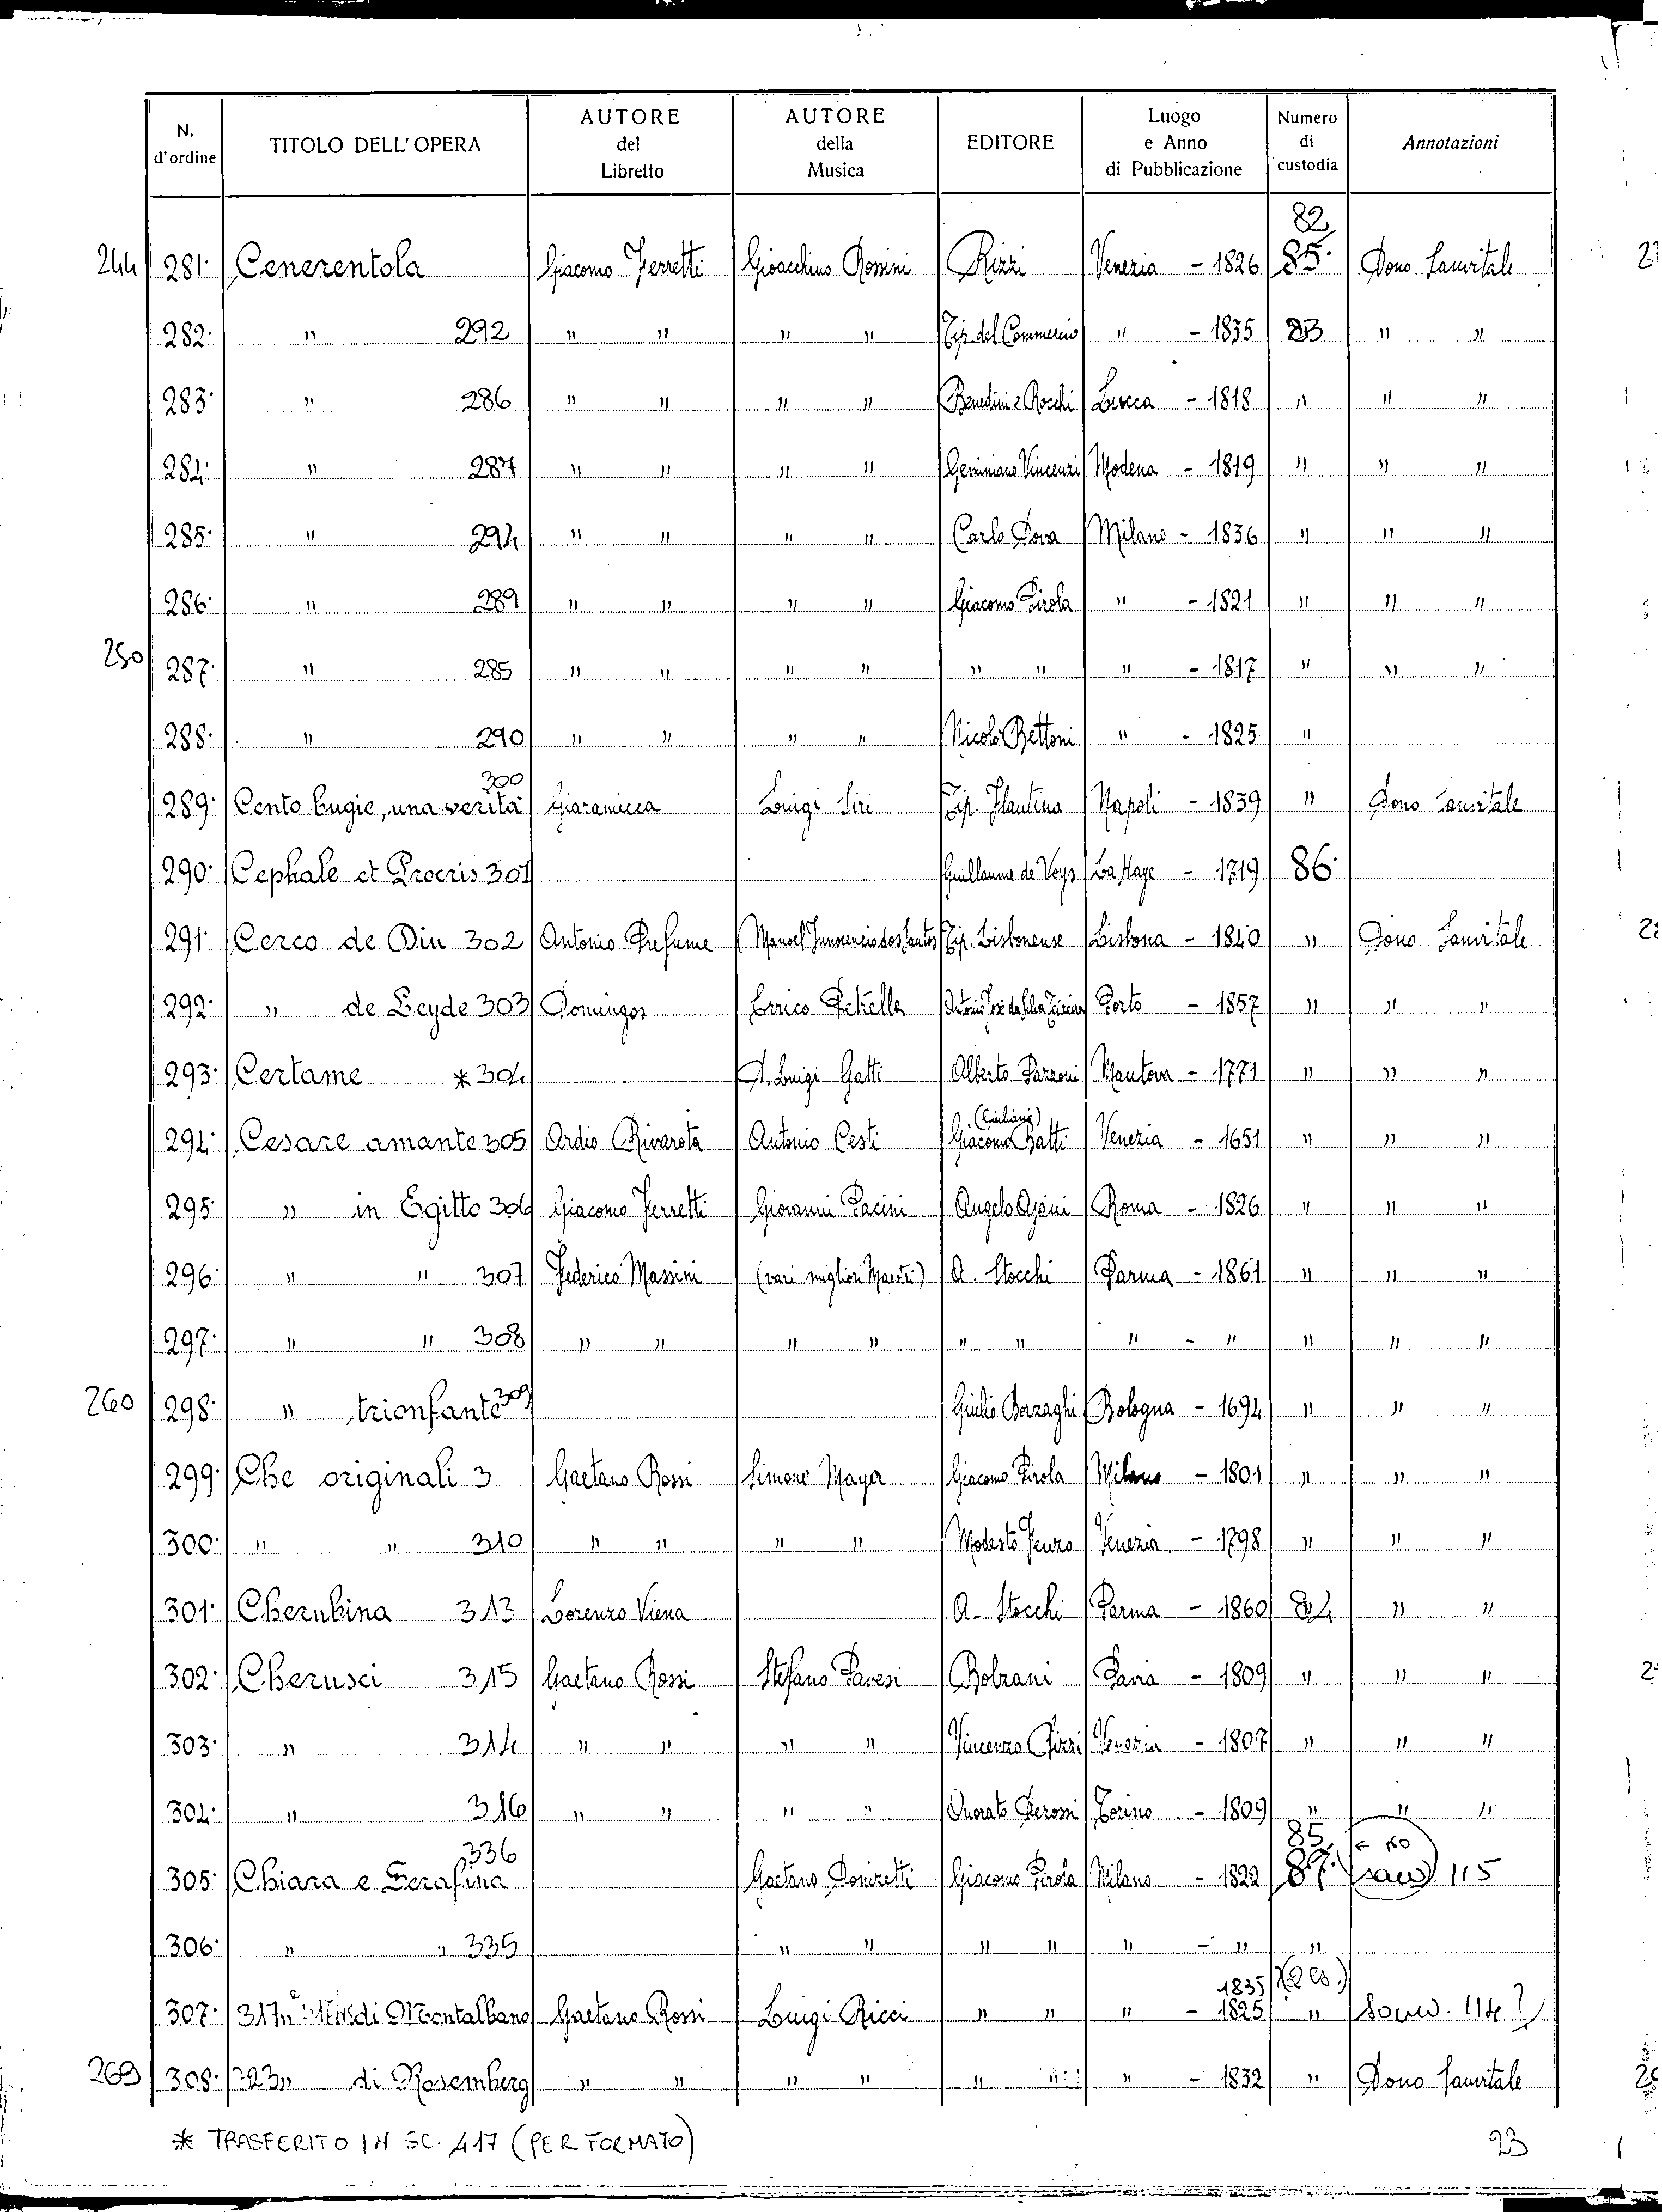 N. d'ordine TITOLO DELL'OPERA AUTORE del Libretto AUTORE della Musica EDITORE Luogo e Anno di Pubblicazione Numero di custodia Annotazioni
82
244 281. Cenerentola Giacomo Ferretti Gioacchino Rossini Rizzi Venezia - 1826 85. Dono Sanvitale
282. " 292 " " " " Tip. del Commercio " - 1835 83 " "
283. " 286 " " " " Benedini e Rocchi Lucca - 1818 " " "
284. " 287 " " " " Geminiano Vincenzi Modena - 1819 " " "
285. " 294 " " " " Carlo Dova Milano - 1836 " " "
286. " 289 " " " " Giacomo Pirola " - 1821 " " "
250 287. " 285 " " " " " " " - 1817 " " "
288. " 290 " " " " Nicolo Bettoni " - 1825 "
300
289. Cento bugie, una verità Giaramicca Luigi Siri Tip. Flautina Napoli - 1839 " Dono Sanvitale
290. Cephale et Procris 301 Guillaume de Voys La Haye - 1719 86.
291. Cerco de Diu 302 Antonio Profumo Manoel Innocencio dos Santos Tip. Lisbonense Lisbona - 1840 " Dono Sanvitale
292. " de Leyde 303 Domingos Errico Petrella Porto - 1857 " " "
293. Certame * 304 A. Luigi Gatti Alberto Pazzoni Mantova - 1771 " " "
(Giuliani)
294. Cesare amante 305 Ardio Rivarota Antonio Cesti Giacomo Batti Venezia - 1651 " " "
295. " in Egitto 306 Giacomo Ferretti Giovanni Pacini Angelo Ajani Roma - 1826 " " "
296. " " 307 Federico Massini (vari migliori Maestri) A. Stocchi Parma - 1861 " " "
297. " " 308 " " " " " " " - " " " "
260 298. " trionfante 309 Giulio Borzaghi Bologna - 1694 " " "
299. Che originali 3 Gaetano Rossi Simone Mayer Giacomo Pirola Milano - 1801 " " "
300. " " 310 " " " " Modesto Fenzo Venezia - 1798 " " "
301. Cherubina 313 Lorenzo Viena A. Stocchi Parma - 1860 84 " "
302. Cherusci 315 Gaetano Rossi Stefano Pavesi Bolzani Pavia - 1809 " " "
303. " 314 " " " " Vincenzo Rizzi Venezia - 1807 " " "
304. " 316 " " " " Onorato Derossi Torino - 1809 " " "
336 85 ← NO
305. Chiara e Serafina Gaetano Donizetti Giacomo Pirola Milano - 1822 87. sanv 115
306. " " 335 " " " " " - " "
1835 (2 es.)
307. 317 " di Montalbano Gaetano Rossi Luigi Ricci " " " - 1825 " sanv. 114 ?
269 308. 323 " di Rosemberg " " " " " " " - 1832 " Dono Sanvitale
* TRASFERITO IN SC. 417 (PER FORMATO)
23